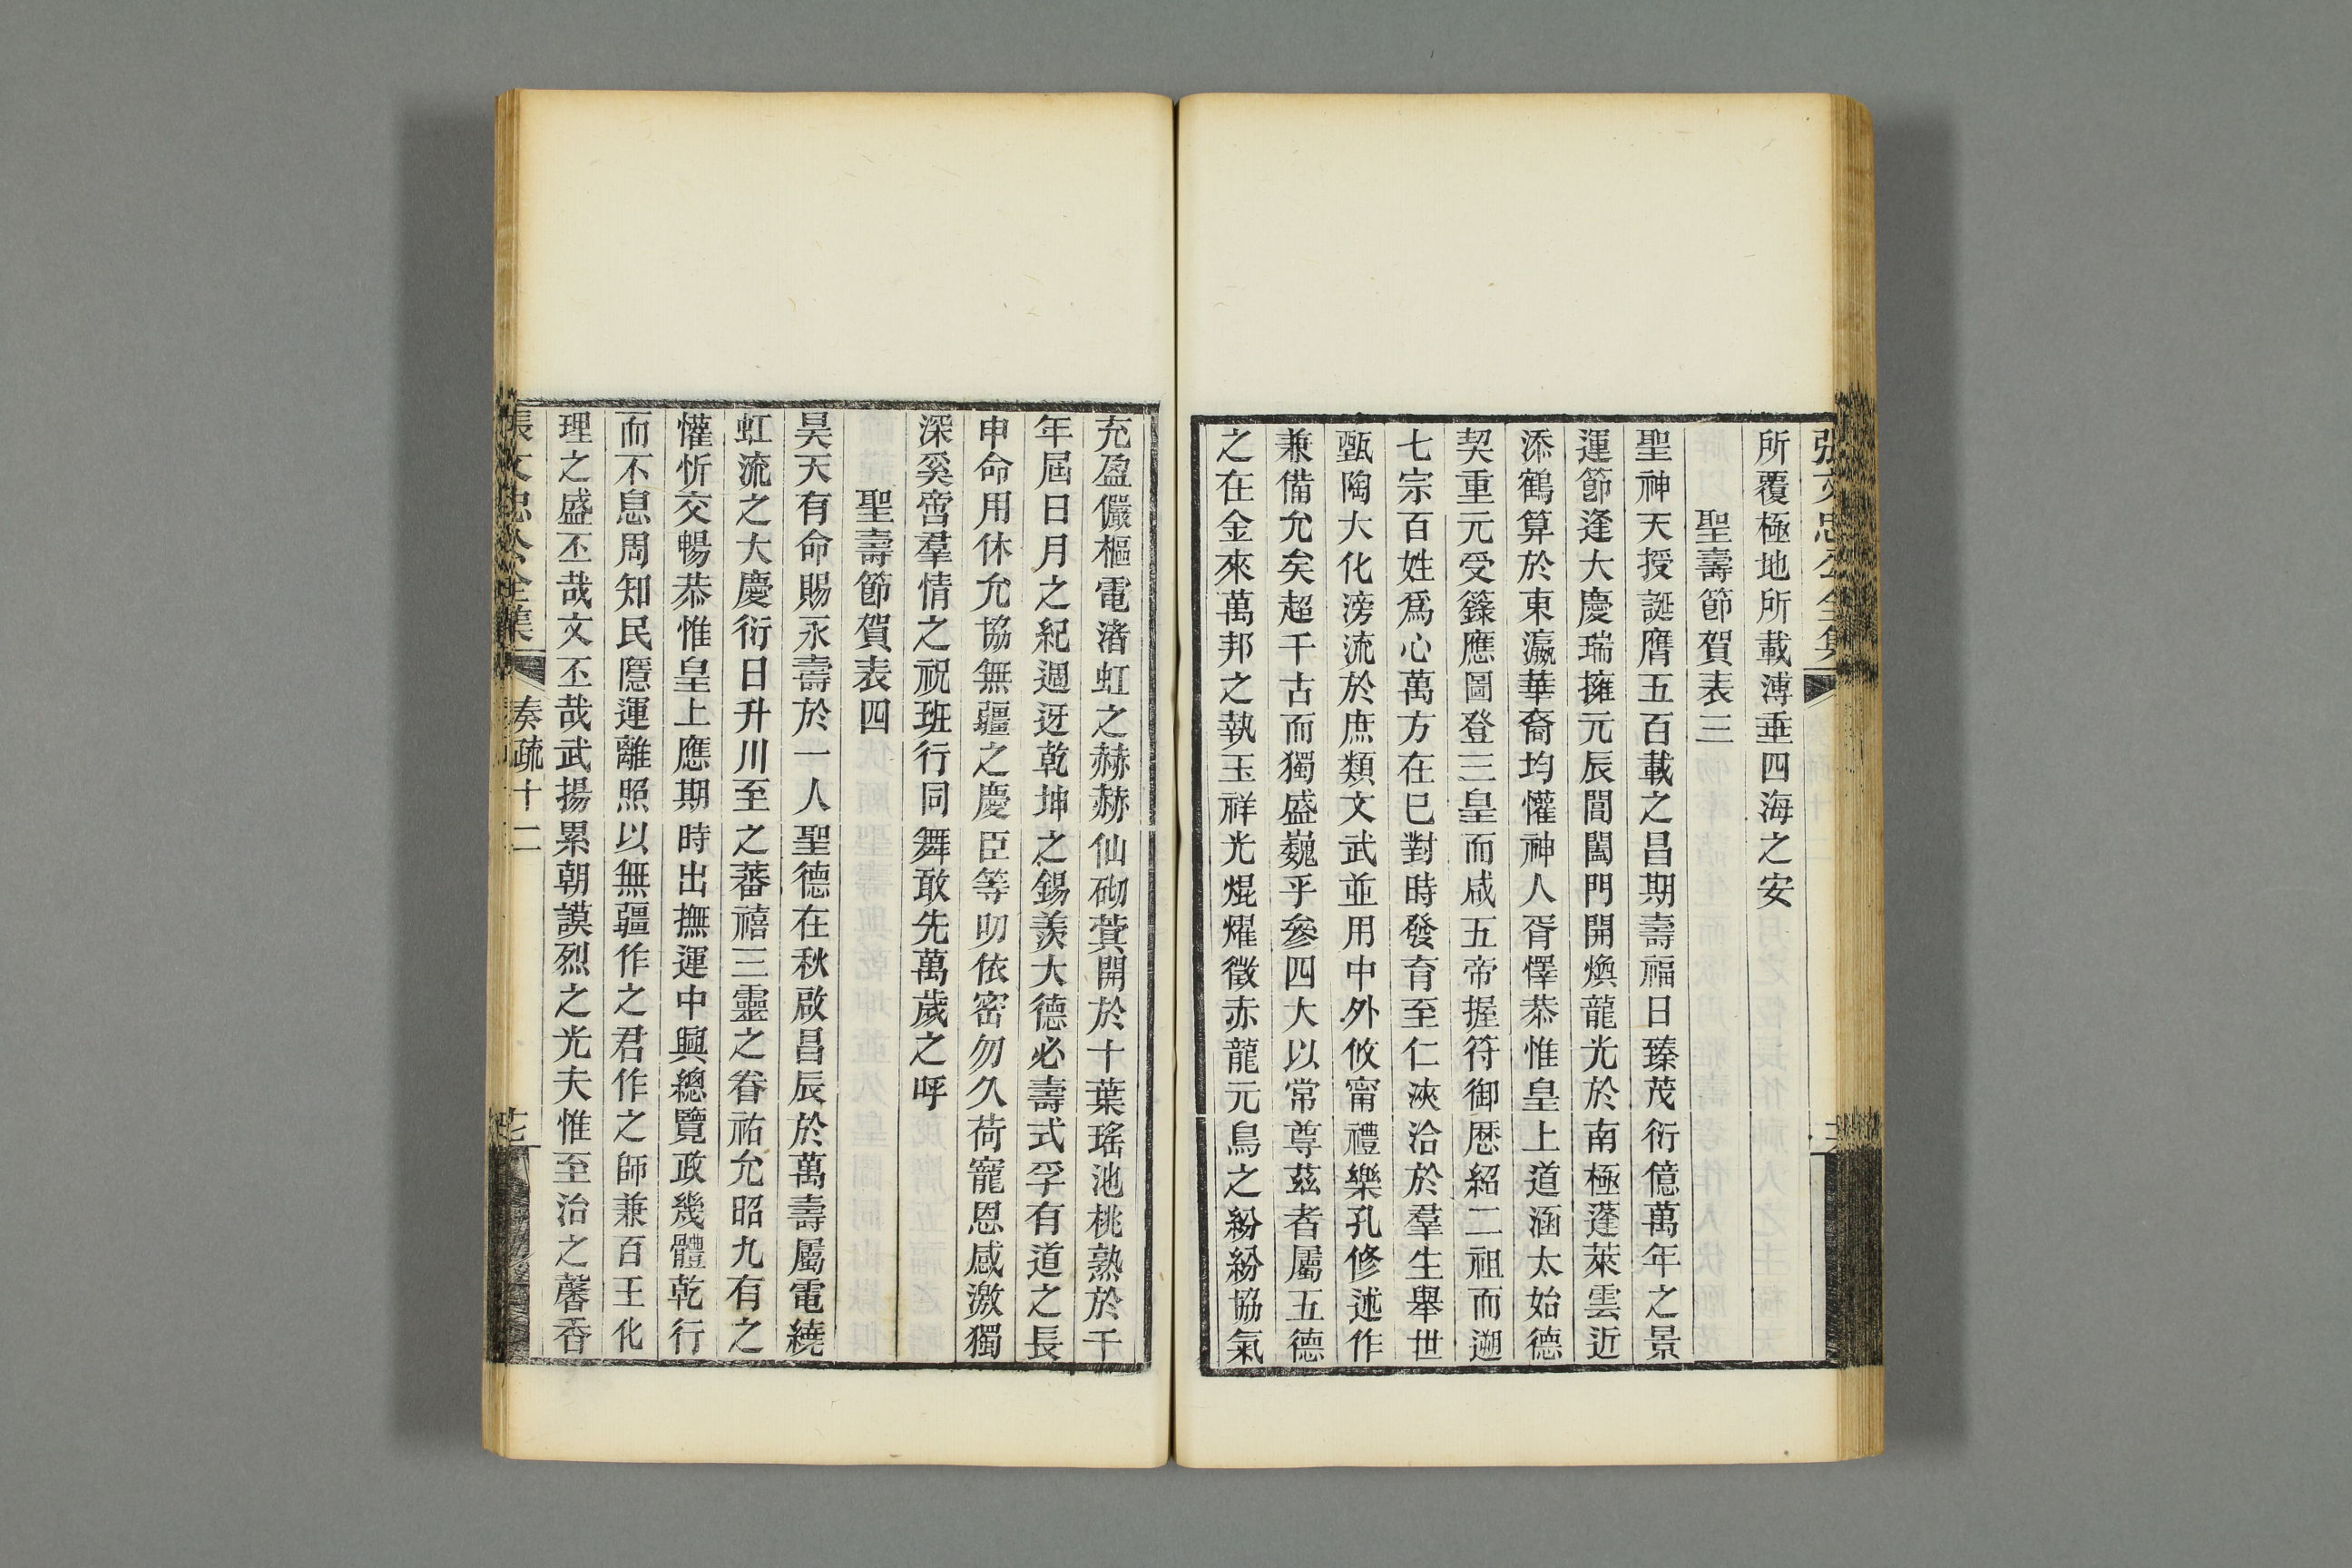 張文忠公全集
所覆極地所載溥垂四海之安
聖壽節賀表三
聖神天授誕膺五百載之昌期壽福日臻茂衍億萬年之景
運節逢大慶瑞擁元辰閶闔門開煥龍光於南極蓬萊雲近
添鶴算於東瀛華裔均懽神人胥懌恭惟皇上道涵太始德
契重元受籙應圖登三皇而咸五帝握符御厯紹二祖而遡
七宗百姓爲心萬方在已對時發育至仁浹洽於羣生舉世
甄陶大化滂流於庶類文武並用中外攸甯禮樂孔修述作
兼備允矣超千古而獨盛巍乎參四大以常尊茲者屬五德
之在金來萬邦之執玉祥光焜燿徵赤龍元鳥之紛紛協氣
充盈儼樞電渚虹之赫赫仙砌蓂開於十葉瑤池桃熟於千
年屆日月之紀週迓乾坤之錫羨大德必壽式孚有道之長
申命用休允協無疆之慶臣等叨依密勿久荷寵恩感激獨
深奚啻羣情之祝班行同舞敢先萬歲之呼
聖壽節賀表四
昊天有命賜永壽於一人聖德在秋啟昌辰於萬壽屬電繞
虹流之大慶衍日升川至之蕃禧三靈之眷祐允昭九有之
懽忻交暢恭惟皇上應期時出撫運中興總覽政幾體乾行
而不息周知民隱運離照以無疆作之君作之師兼百王化
理之盛丕哉文丕哉武揚累朝謨烈之光夫惟至治之馨香
張文忠公全集
奏疏十二